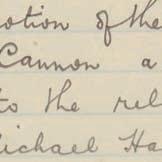 otion of the
Cannon a
to the rel
ichael Ha